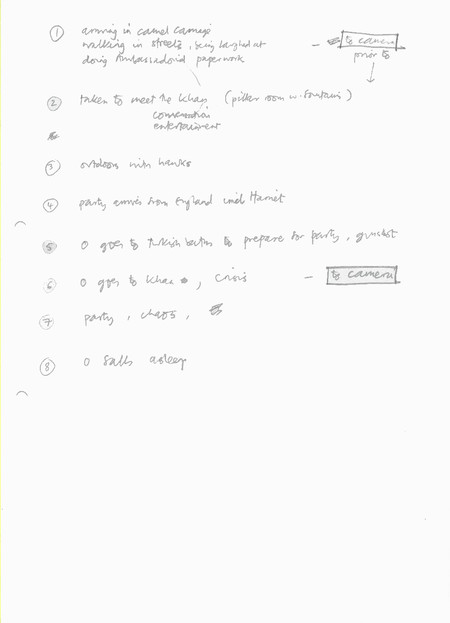 ① arriving in camel carriage
walking in streets, being laughed at - to camera
doing Ambassadorial paperwork prior to
② taken to meet the Khan (pillar room w. fountain)
conversation
entertainment
③ outdoors with hawks
④ party arrives from England incl Harriet
⑤ O goes to Turkish baths to prepare for party, gunshot
⑥ O goes to Khan, crisis - to camera
⑦ party, chaos,
⑧ O falls asleep